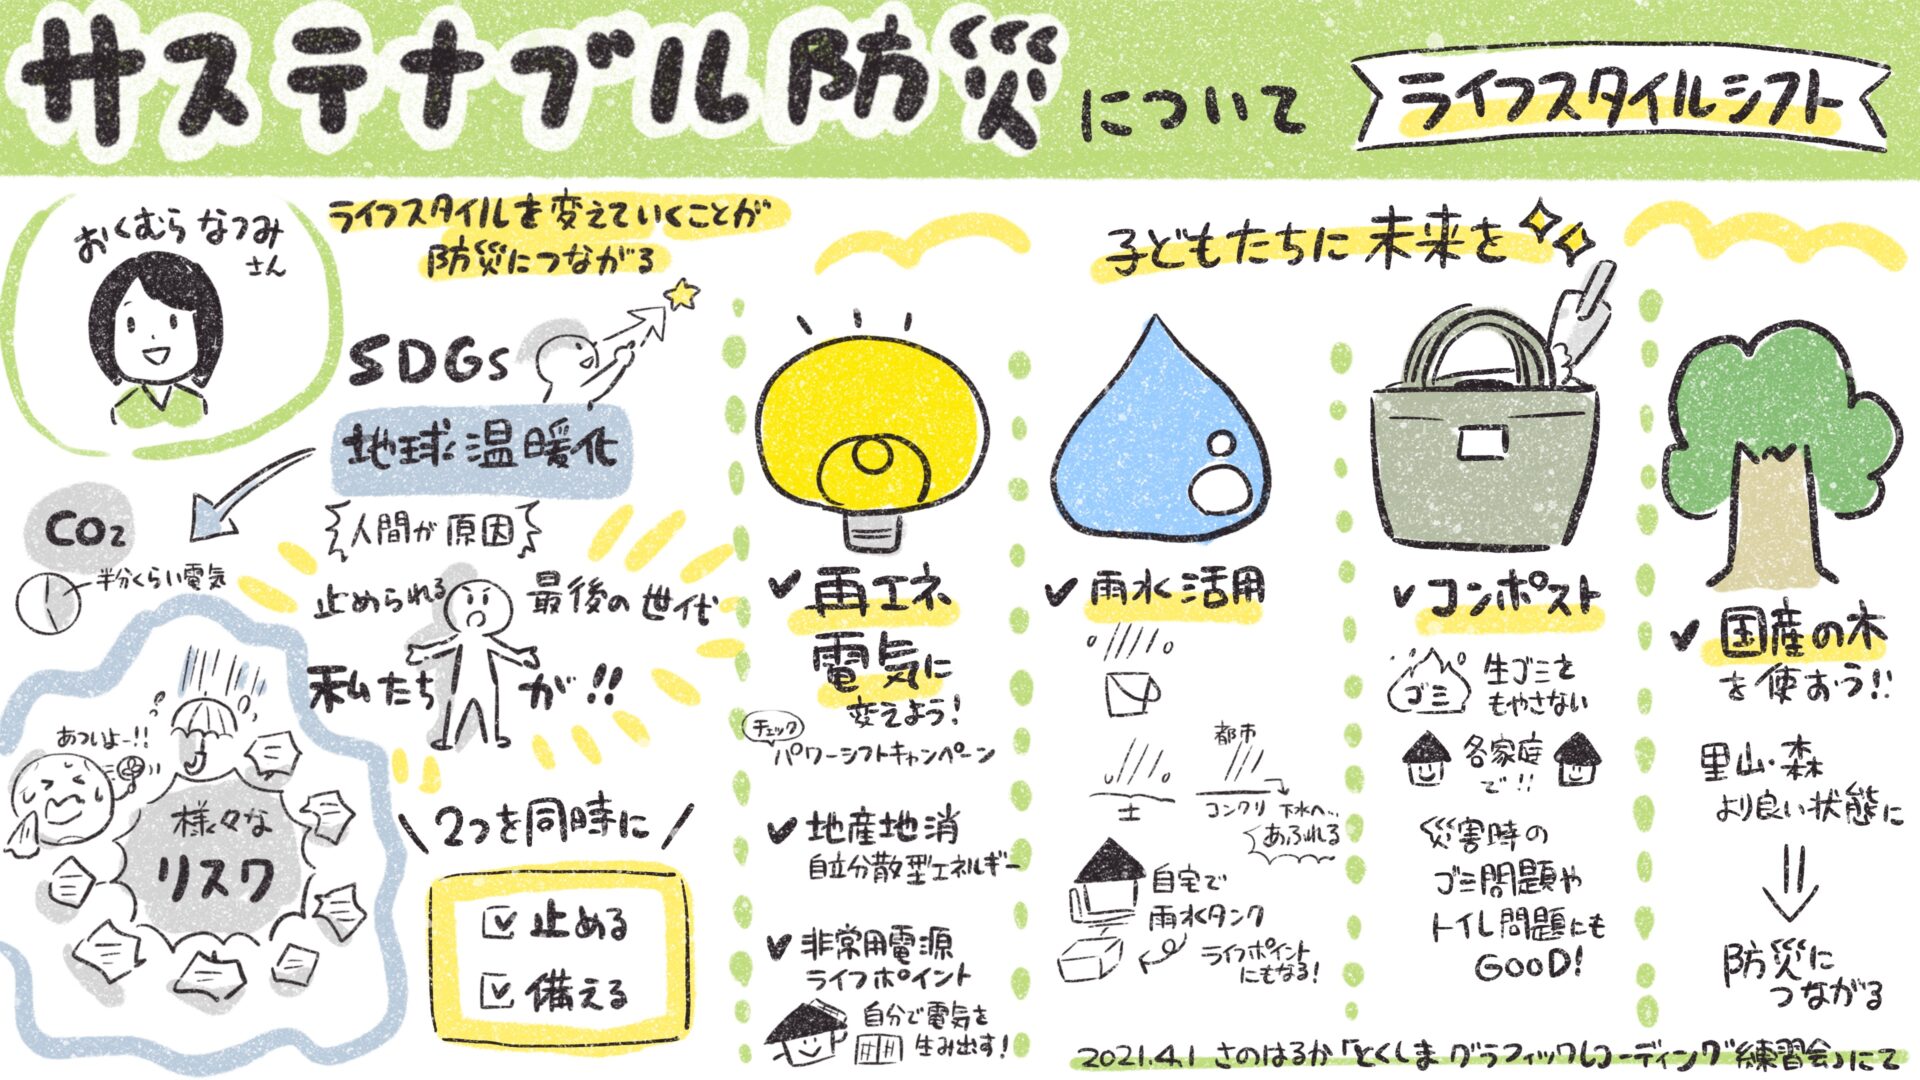 サステナブル防災について
ライフスタイルシフト
おくむらなつみ
さん
ライフスタイルを変えていくことが
防災につながる
SDGs
地球温暖化
人間が原因
CO2
半分くらい電気
止められる最後の世代
私たちが!!
あついよー!!
様々な
リスク
2つを同時に
止める
備える
子どもたちに未来を
再エネ
電気に
変えよう!
チェック
パワーシフトキャンペーン
地産地消
自立分散型エネルギー
非常用電源
ライフポイント
自分で電気を
生み出す!
雨水活用
土
都市
コンクリ
下水へ…
あふれる
自宅で
雨水タンク
ライフポイント
にもなる!
コンポスト
ゴミ
生ゴミを
もやさない
各家庭
で!!
災害時の
ゴミ問題や
トイレ問題にも
GOOD!
国産の木
を使おう!!
里山・森
より良い状態に
防災に
つながる
2021.4.1 さのはるか「とくしまグラフィックレコーディング練習会」にて